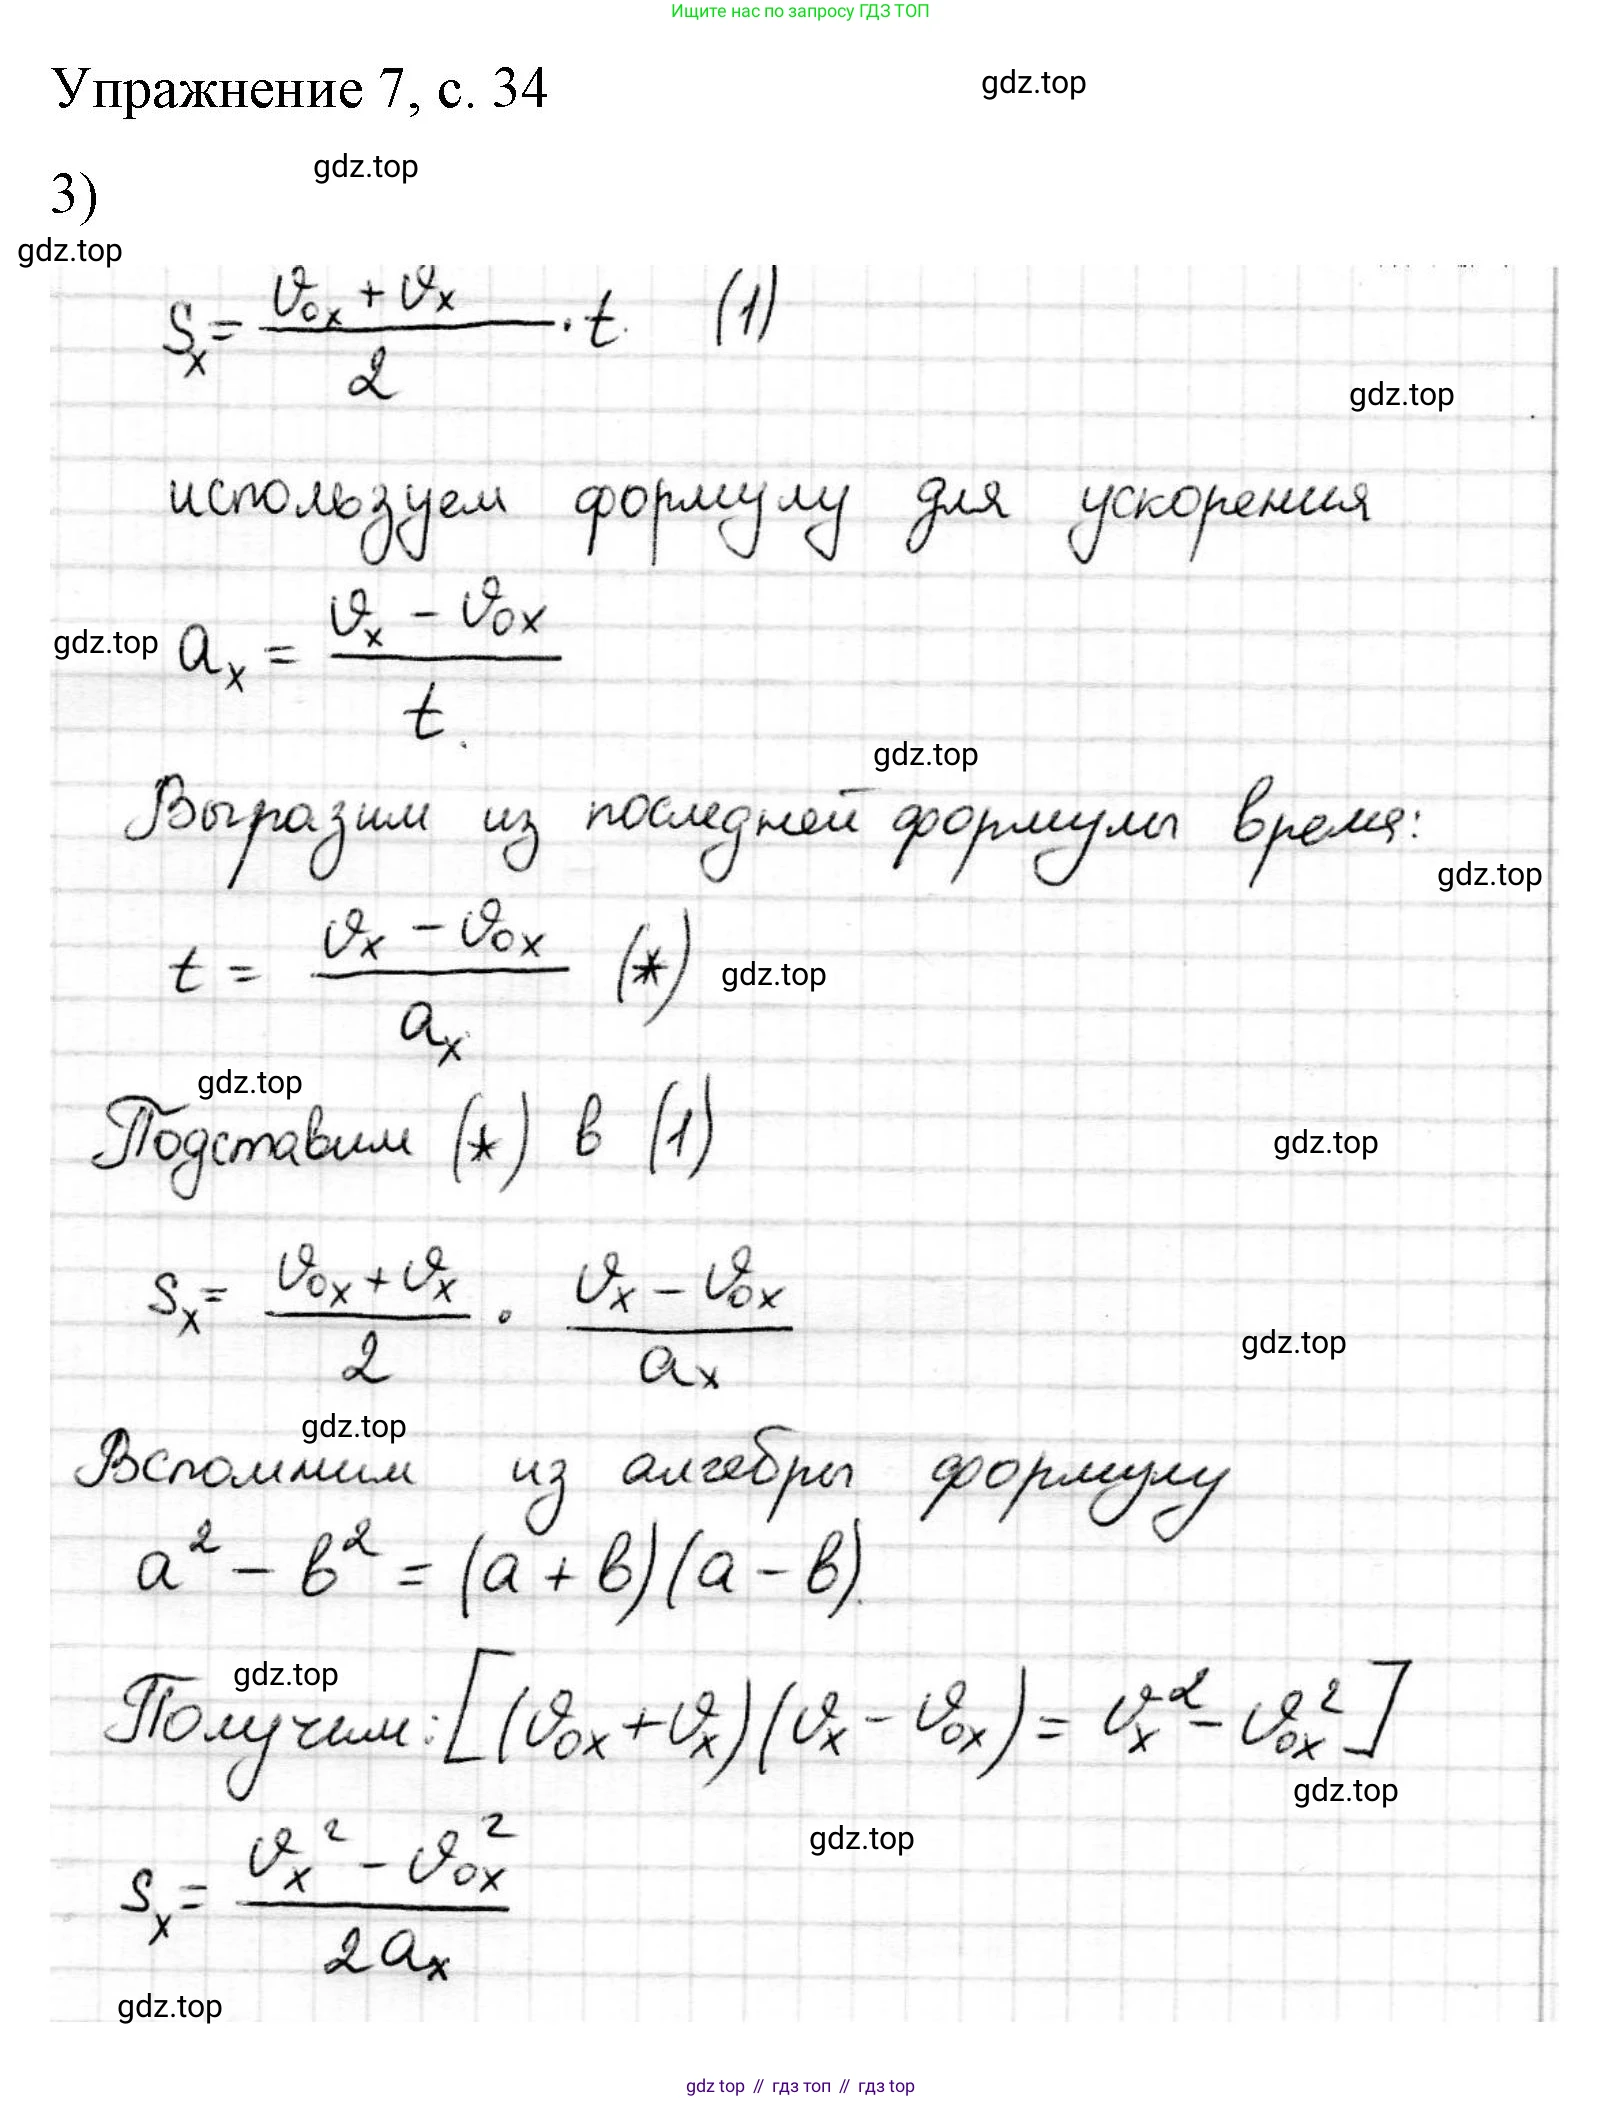 Ищите нас по запросу ГДЗ ТОП
Упражнение 7, с. 34
gdz.top
3)
gdz.top
gdz.top
Sx = (v0x + vx)/2 · t. (1)
gdz.top
используем формулу для ускорения
gdz.top
ax = (vx − v0x)/t.
gdz.top
Выразим из последней формулы время:
gdz.top
t = (vx − v0x)/ax (*)
gdz.top
gdz.top
Подставим (*) в (1)
gdz.top
sx = (v0x + vx)/2 · (vx − v0x)/ax
gdz.top
gdz.top
Вспомним из алгебры формулу
a² − в² = (a + в)(a − в).
gdz.top
Получим: [(v0x + vx)(vx − v0x) = vx² − v0x²]
gdz.top
gdz.top
sx = (vx² − v0x²)/2ax
gdz.top
gdz top // гдз топ // gdz top